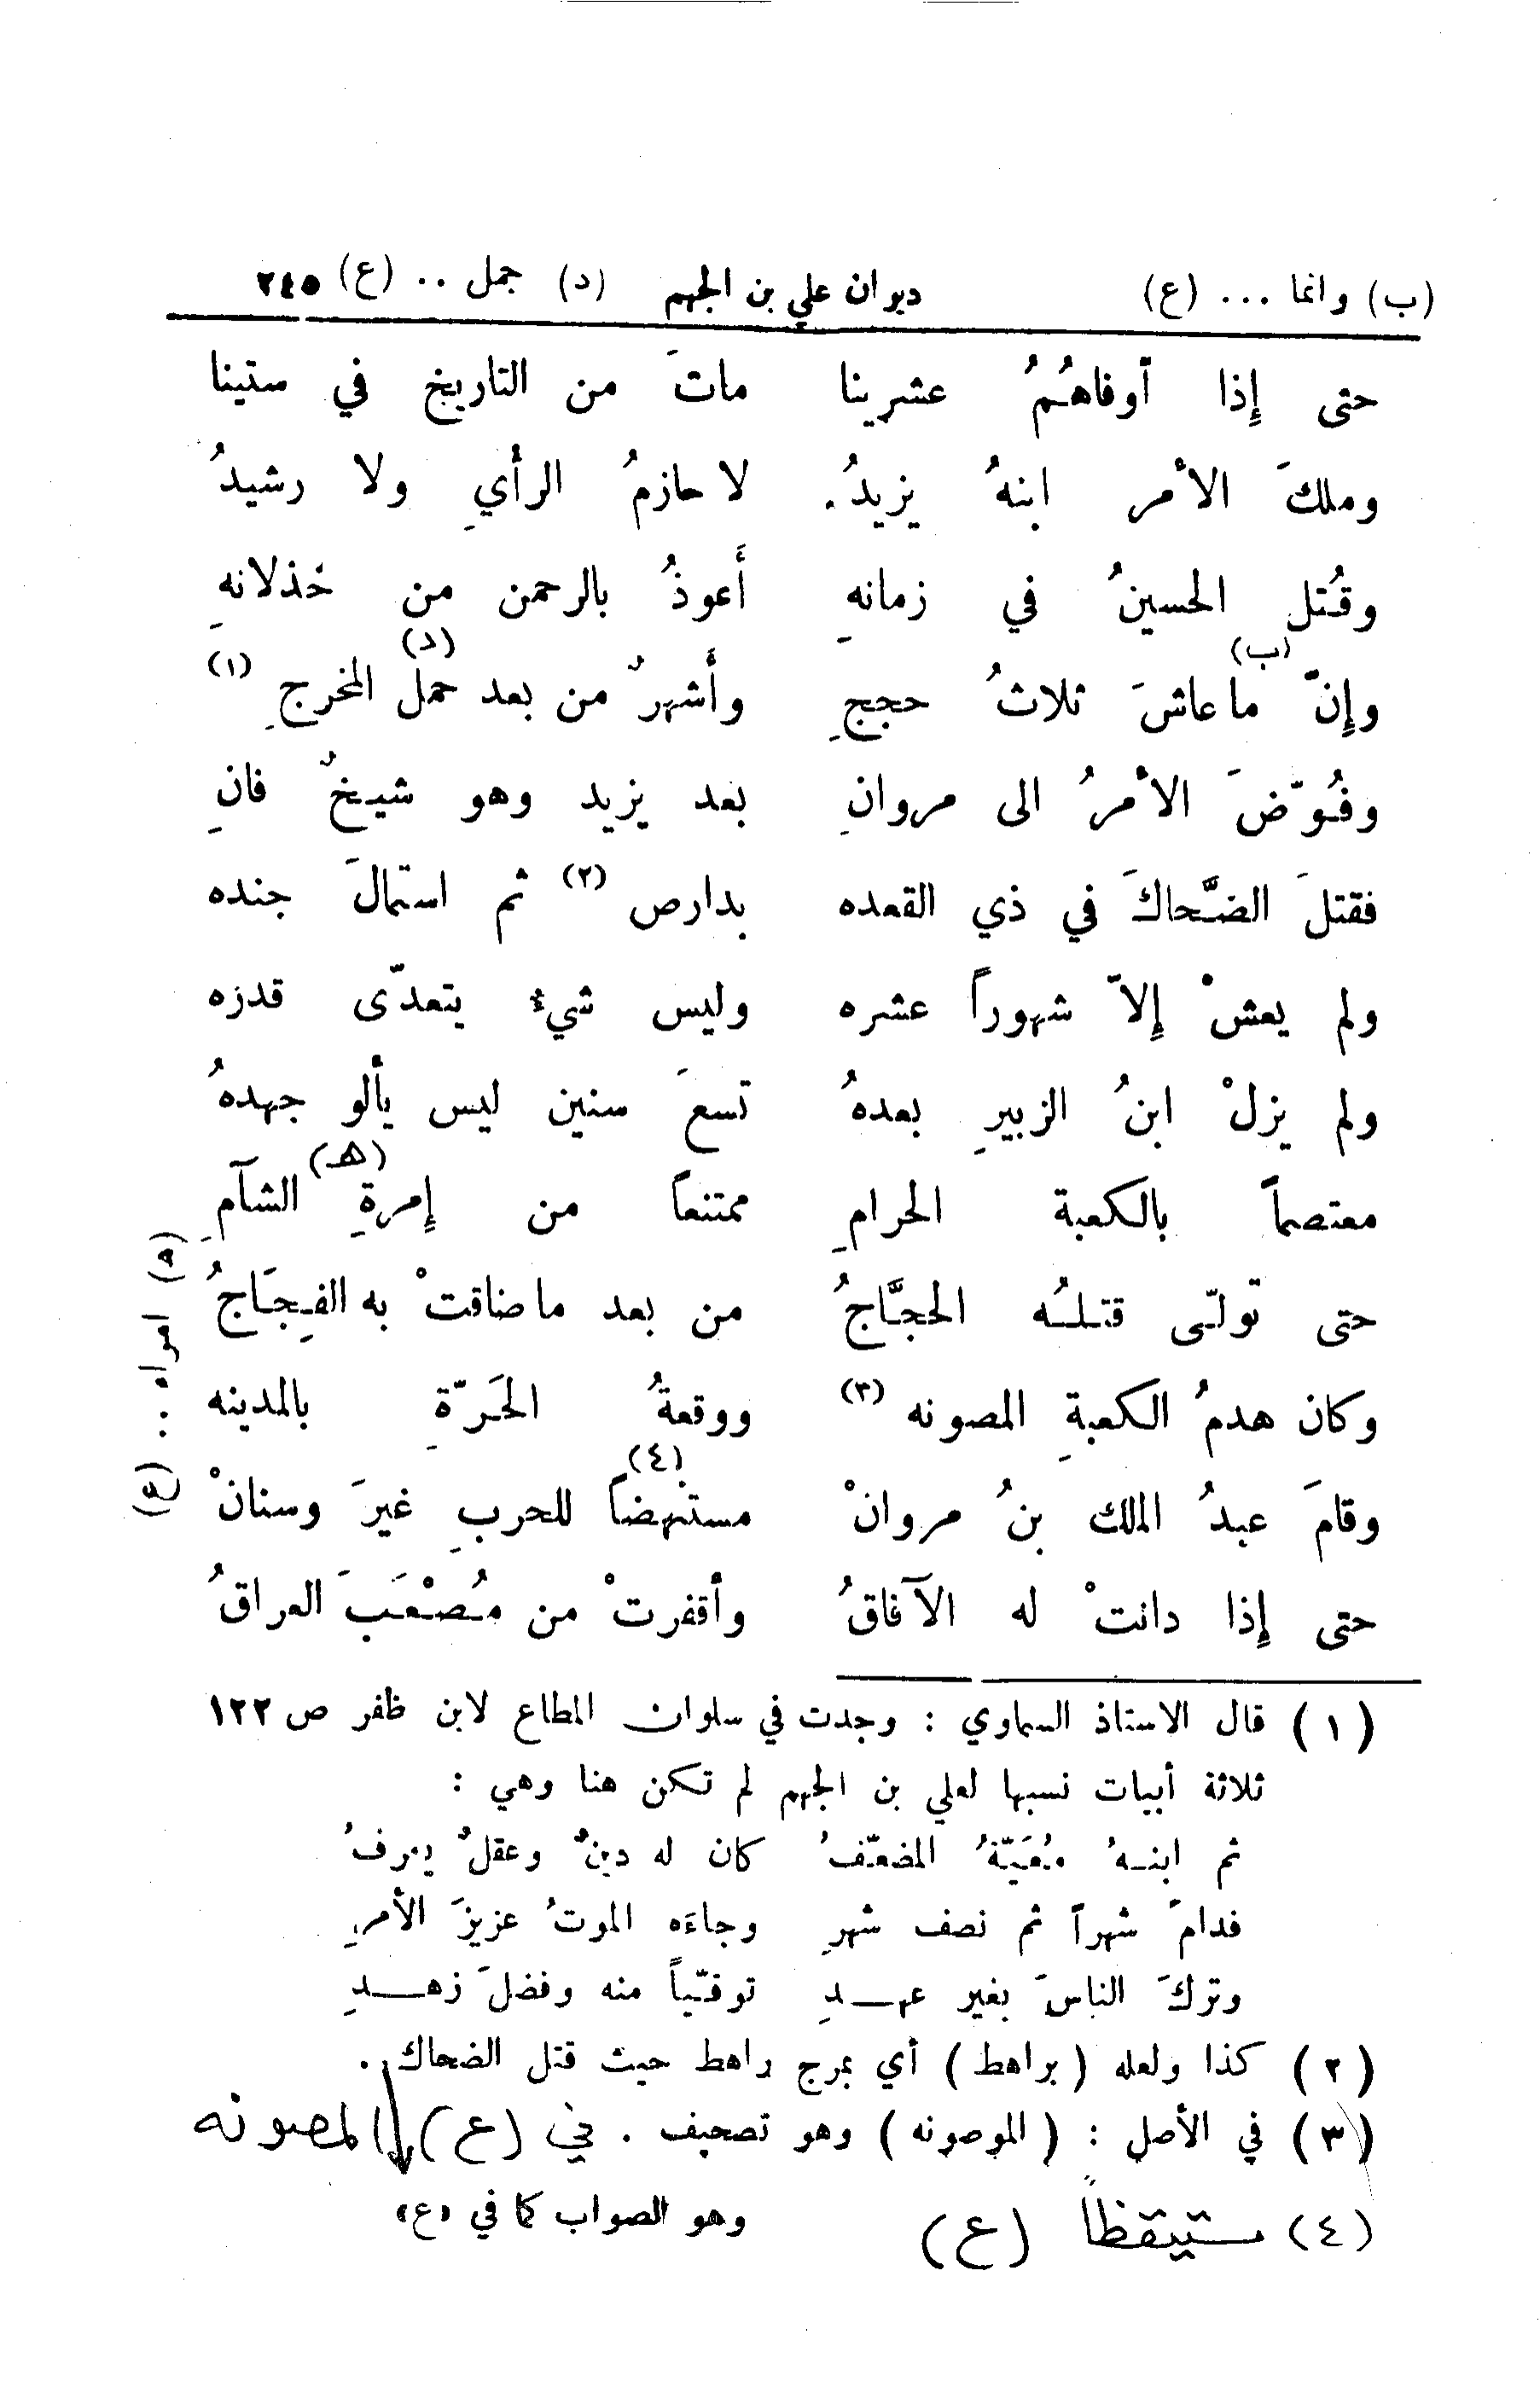 (ب) وانما ... (ع) ديوان علي بن الجهم (د) جمل .. (ع) ٢٤٥
حتى إِذا أوفاهُمُ عشرينا ماتَ من التاريخ في ستينا
وملكَ الأمر ابنهُ يزيدُ. لا حازمُ الرأيِ ولا رشيدُ
وقُتل الحسينُ في زمانهِ أَعوذُ بالرحمن من خذلانهِ
وإِنّ ما (ب) عاشَ ثلاثُ حججِ وأَشهرٌ من بعد حمل (د) المخرجِ (١)
وفُوّضَ الأمرُ الى مروانِ بعد يزيد وهو شيخٌ فانِ
فقتلَ الضَّحاكَ في ذي القعده بدارص (٢) ثم استمالَ جنده
ولم يعشْ إِلاّ شهوراً عشره وليس شيءٌ يتعدّى قدره
ولم يزلْ ابنُ الزبيرِ بعدهُ تسعَ سنين ليس يألو جهدهُ
معتصماً بالكعبة الحرامِ ممتنعاً من إِمرةِ (هـ) الشآمِ
حتى تولّى قتلُه الحجَّاجُ من بعد ما ضاقتْ به الفِجَاجُ
وكان هدمُ الكعبةِ المصونه (٣) ووقعةُ الحَرّةِ بالمدينه
وقامَ عبدُ الملك بنُ مروانْ مستنهضاً (٤) للحربِ غيرَ وسنانْ
حتى إِذا دانتْ له الآفاقُ وأقفرتْ من مُصْعَبَ العراقُ
(ه) امراه : (ع)
(١) قال الاستاذ السماوي : وجدت في سلوان المطاع لابن ظفر ص ١٢٢
ثلاثة أبيات نسبها لعلي بن الجهم لم تكن هنا وهي :
ثم ابنهُ المضعّفُ كان له دينٌ وعقلٌ يعرفُ
فدامَ شهراً ثم نصف شهرِ وجاءَه الموتُ عزيزَ الأمرِ
وتركَ الناسَ بغير عهـدِ توقّياً منه وفضلَ زهـدِ
(٢) كذا ولعله ( براهط ) أي بمرج راهط حيث قتل الضحاك .
(٣) في الأصل : ( الموصونه ) وهو تصحيف . في (ع) المصونه
وهو الصواب كما في «ع»
(٤) مستيقظاً (ع)